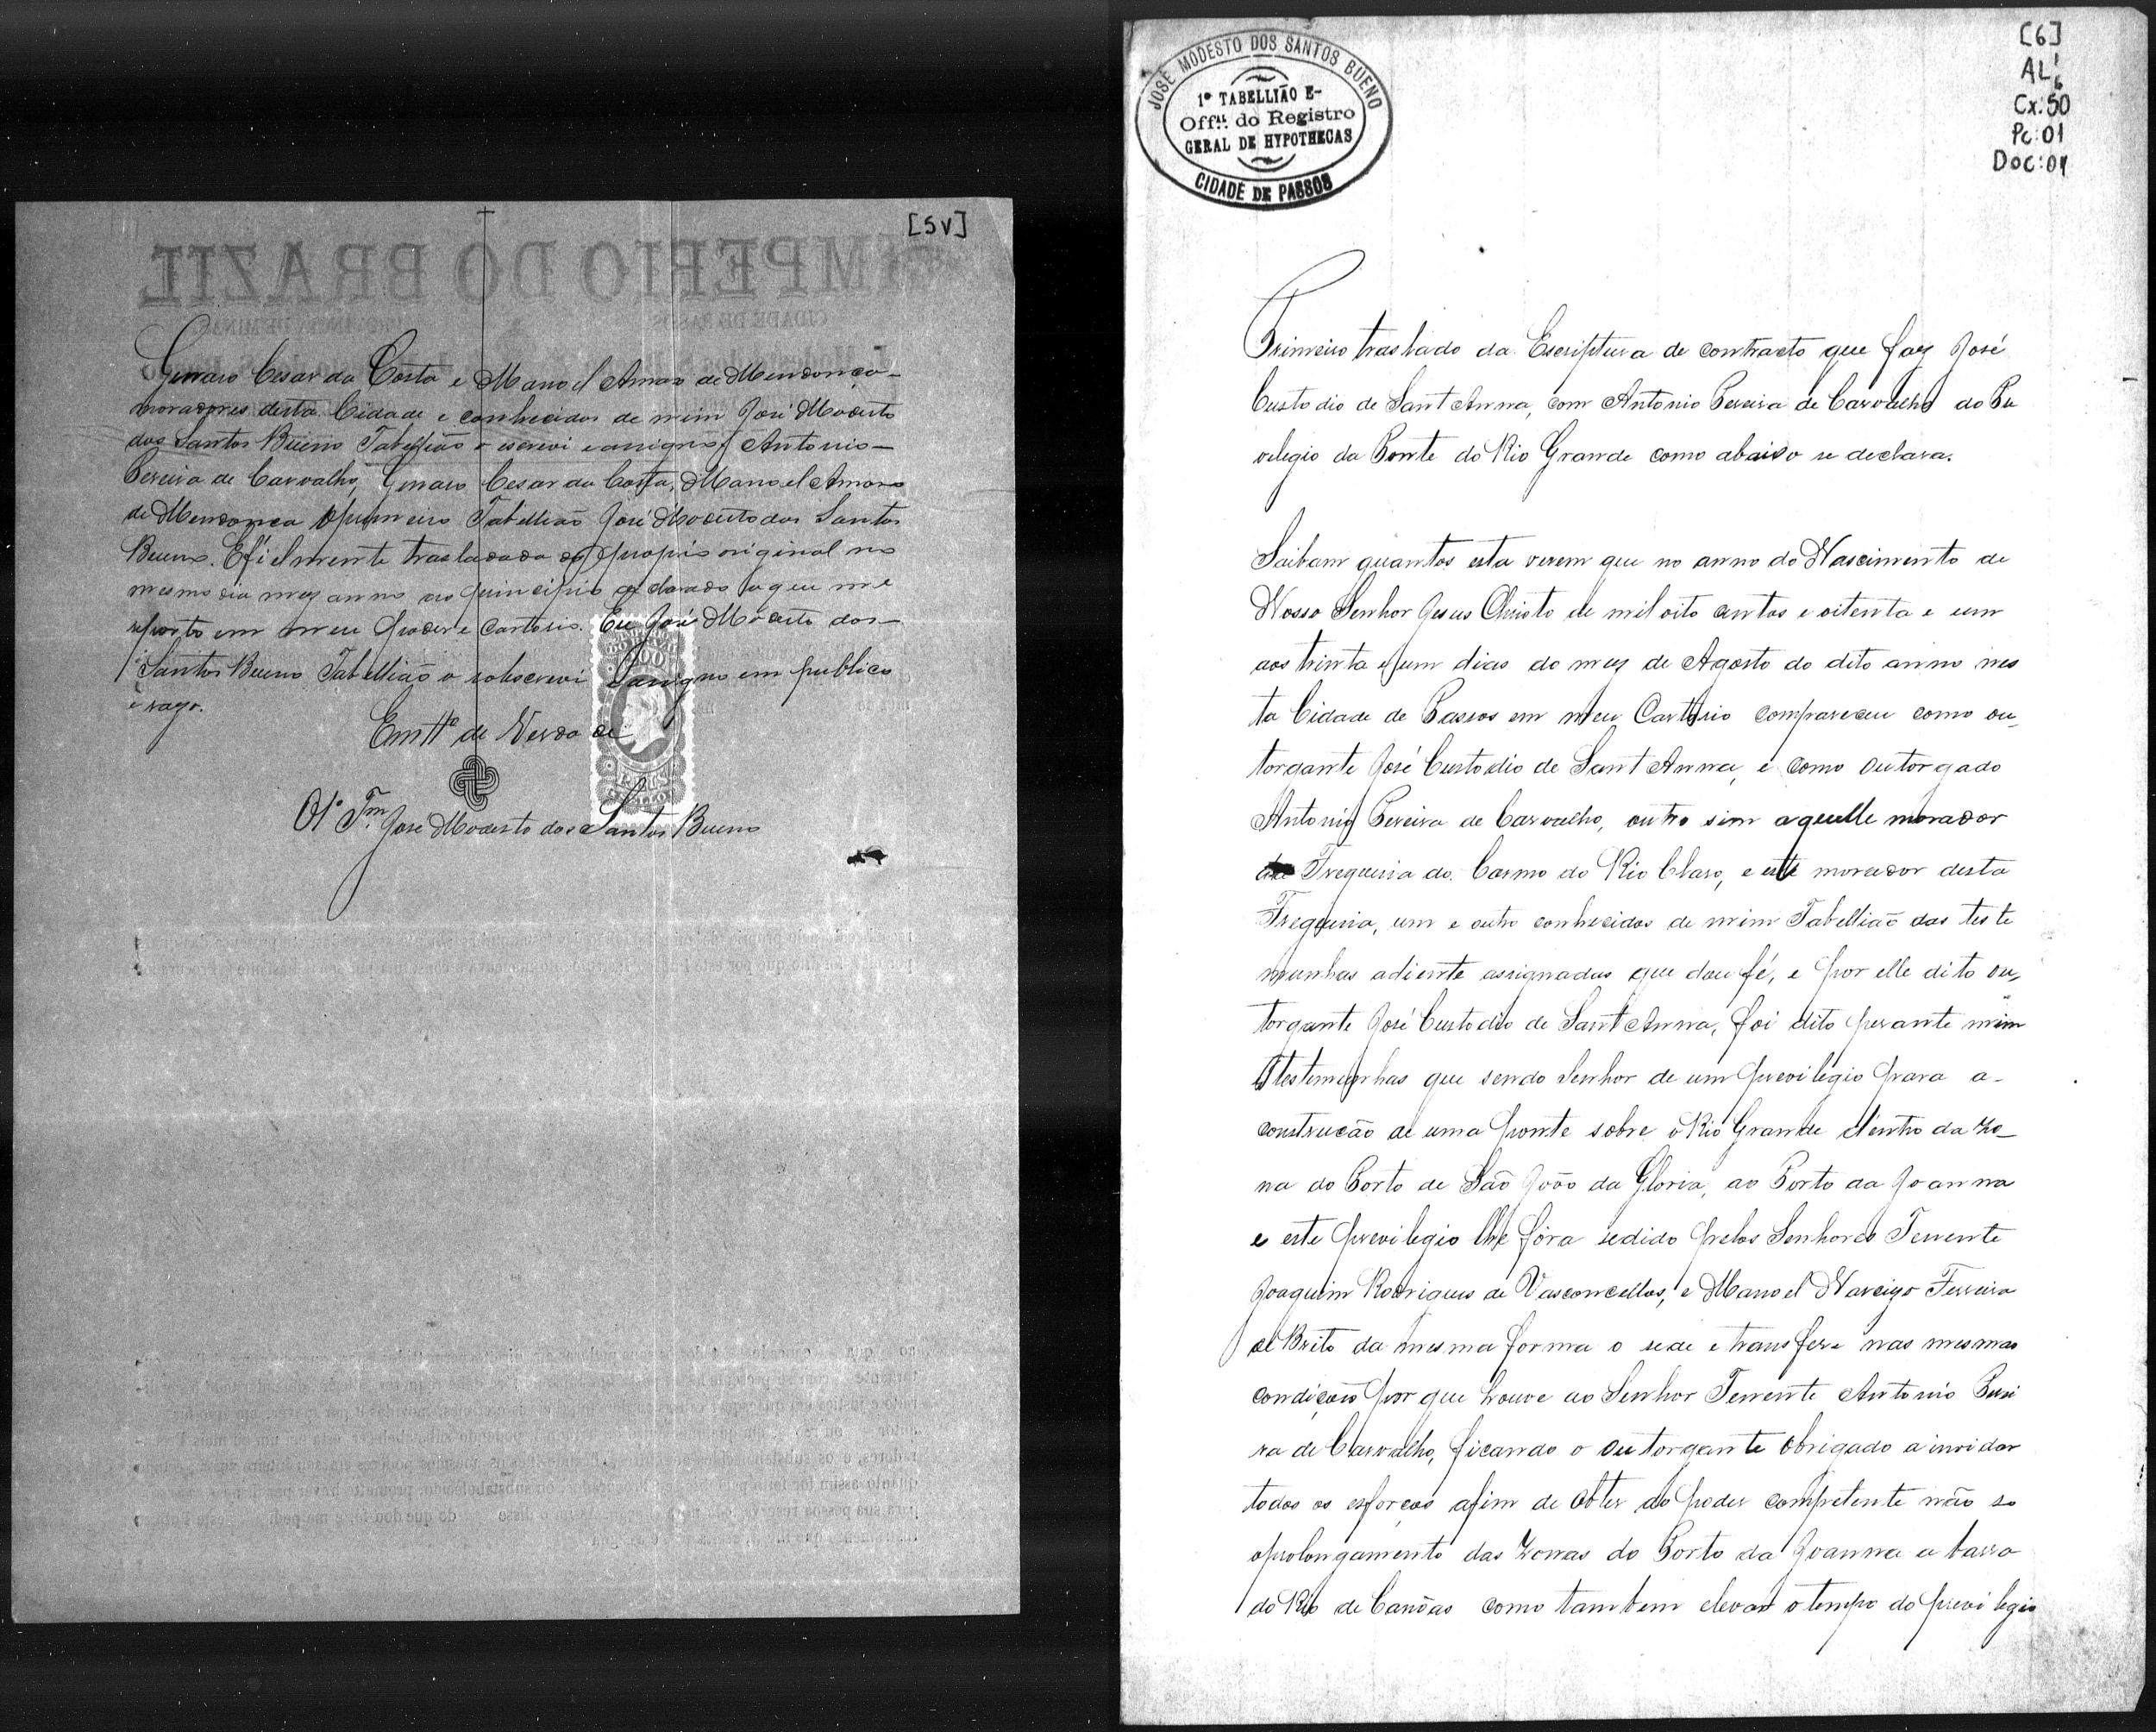 [5V]
IMPERIO DO BRAZIL
CIDADE DE PASSOS
PROVINCIA DE MINAS
Genaro Cesar da Costa e Manoel Amaro de Mendonça
moradores desta Cidade e conhecidos de mim José Modesto
dos Santos Bueno Tabellião o escrevi e assigno Antonio
Pereira de Carvalho, Genaro Cesar da Costa, Manoel Amaro
de Mendonça O primeiro Tabellião José Modesto dos Santos
Bueno. E fielmente trasladada do proprio original no
mesmo dia mez anno ao principio declarado a que me
reporto em meu poder e cartorio. Eu José Modesto dos
Santos Bueno Tabellião o subscrevi e assigno em publico
e razo.
200
Em tto de Verdade
REIS
O 1º Tam José Modesto dos Santos Bueno
[6]
AL
Cx:50
Pc:01
Doc:01
JOSÉ MODESTO DOS SANTOS BUENO
1º TABELLIÃO E-
Offal do Registro
GERAL DE HYPOTHECAS
CIDADE DE PASSOS
Primeiro traslado da Escriptura de contracto que faz José
Custodio de Sant Anna, com Antonio Pereira de Carvalho do Pri
velegio da Ponte do Rio Grande como abaixo se declara.
Saibam quantos esta virem que no anno do Nascimento de
Nosso Senhor Jesus Christo de mil oito centos e oitenta e um
aos trinta e um dias do mez de Agosto do dito anno nes
ta Cidade de Passos em meu Cartorio compareceu como ou_
torgante José Custodio de Sant Anna, e como outorgado
Antonio Pereira de Carvalho, outro sim aquelle morador
Freguesia do Carmo do Rio Claro, e este morador desta
Freguesia, um e outro conhecidos de mim Tabellião das teste
munhas adiente assignadas que dou fé, e por elle dito ou,
torgante José Custodio de Sant Anna, foi dito perante mim
e testemunhas que sendo Senhor de um previlegio para a-
construcão de uma ponte sobre o Rio Grande dentro da zo_
na do Porto de São João da Gloria, ao Porto da Joanna
e este previlegio lhe fôra sedido pelos Senhores Tenente
Joaquim Rodrigues de Vasconcellos, e Manoel Narcizo Ferreira
de Brito da mesma forma o sede e transfere nas mesmas
condições por que houve ao Senhor Tenente Antonio Perei
ra de Carvalho, ficando o outorgante obrigado a invidar
todos os esforços afim de obter do poder competente não so
o prolongamento das zonas do Porto da Joanna a barra
do Rio de Canôas como tambem elevar o tempo do previlegio